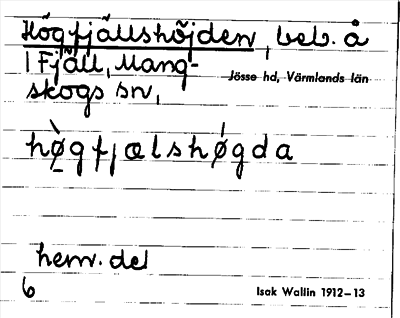 Högfjällshöjden, beb. å
1 Fjäll, Mang-
Jösse hd, Värmlands län
skogs sn,
hø̀gfjælshǿgda
hem. del
6
Isak Wallin 1912–13